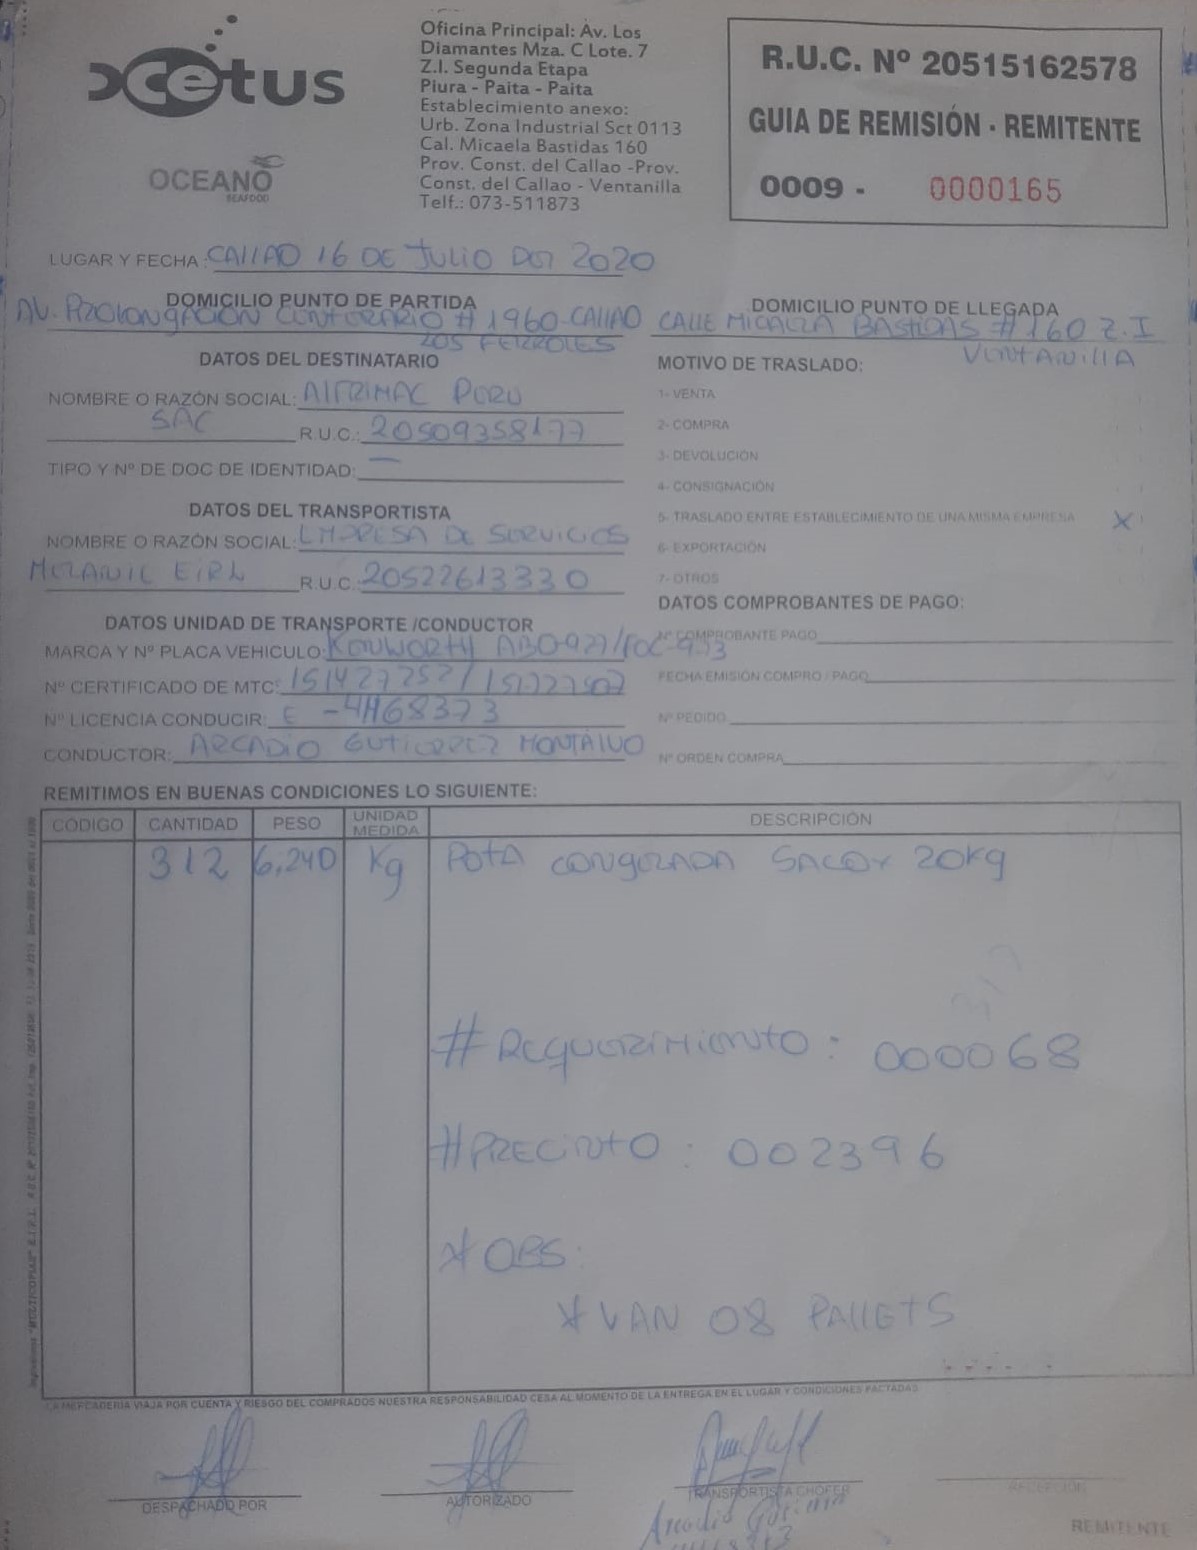 cetus
OCEANO
SEAFOOD
Oficina Principal: Av. Los
Diamantes Mza. C Lote. 7
Z.I. Segunda Etapa
Piura - Paita - Paita
Establecimiento anexo:
Urb. Zona Industrial Sct 0113
Cal. Micaela Bastidas 160
Prov. Const. del Callao -Prov.
Const. del Callao - Ventanilla
Telf.: 073-511873
R.U.C. Nº 20515162578
GUIA DE REMISIÓN - REMITENTE
0009 - 0000165
LUGAR Y FECHA: CALLAO 16 DE JULIO DEL 2020
DOMICILIO PUNTO DE PARTIDA
AV. PROLONGACION CENTENARIO # 1960-CALLAO
LOS FERROLES
DOMICILIO PUNTO DE LLEGADA
CALLE MICAELA BASTIDAS #160 Z.I
VENTANILLA
DATOS DEL DESTINATARIO
NOMBRE O RAZÓN SOCIAL: ALTRIMAC PERU
SAC R.U.C.: 20509358177
TIPO Y Nº DE DOC DE IDENTIDAD: —
DATOS DEL TRANSPORTISTA
NOMBRE O RAZÓN SOCIAL: EMPRESA DE SERVICIOS
MELANIE EIRL R.U.C. 20522613330
DATOS UNIDAD DE TRANSPORTE /CONDUCTOR
MARCA Y Nº PLACA VEHICULO: KENWORTH
Nº CERTIFICADO DE MTC: 151427252 /
Nº LICENCIA CONDUCIR: E -4468373
CONDUCTOR: ARCADIO GUTIERREZ MONTALVO
MOTIVO DE TRASLADO:
1- VENTA
2- COMPRA
3- DEVOLUCIÓN
4- CONSIGNACIÓN
5- TRASLADO ENTRE ESTABLECIMIENTO DE UNA MISMA EMPRESA X
6- EXPORTACIÓN
7- OTROS
DATOS COMPROBANTES DE PAGO:
Nº COMPROBANTE PAGO
FECHA EMISIÓN COMPRO / PAGO
Nº PEDIDO
Nº ORDEN COMPRA
REMITIMOS EN BUENAS CONDICIONES LO SIGUIENTE:
CÓDIGO CANTIDAD PESO UNIDAD MEDIDA DESCRIPCIÓN
312 6,240 Kg POTA CONGELADA SACOX 20Kg
# REQUERIMIENTO: 000068
# PRECINTO: 002396
* OBS:
* VAN 08 PALLETS
LA MERCADERIA VIAJA POR CUENTA Y RIESGO DEL COMPRADOS NUESTRA RESPONSABILIDAD CESA AL MOMENTO DE LA ENTREGA EN EL LUGAR Y CONDICIONES PACTADAS
DESPACHADO POR
AUTORIZADO
TRANSPORTISTA CHOFER
RECEPCIÓN
Arcadio
REMITENTE